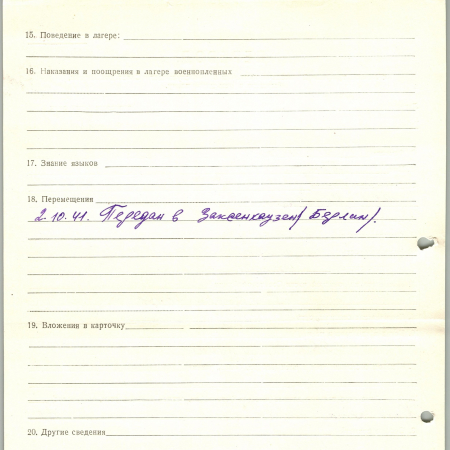 15. Поведение в лагере:
16. Наказания и поощрения в лагере военнопленных
17. Знание языков
18. Перемещения
2.10.41. Передан в Заксенхаузен /Берлин/.
19. Вложения в карточку
20. Другие сведения